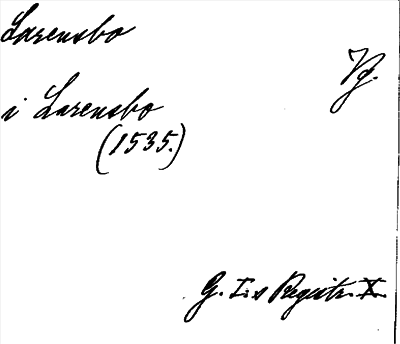 Larensbo
Vg.
i Larensbo
(1535.)
G. I:s Registr. X.